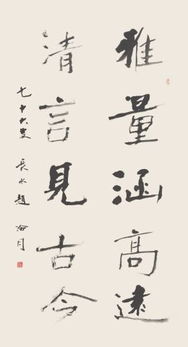 雅量涵高遠
清言見古今
七十六叟 長水趙